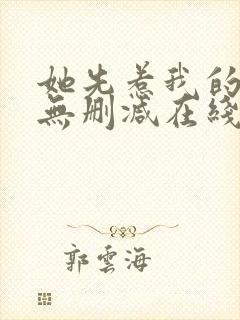 她先惹我的
無刪减在綫
郭雲海